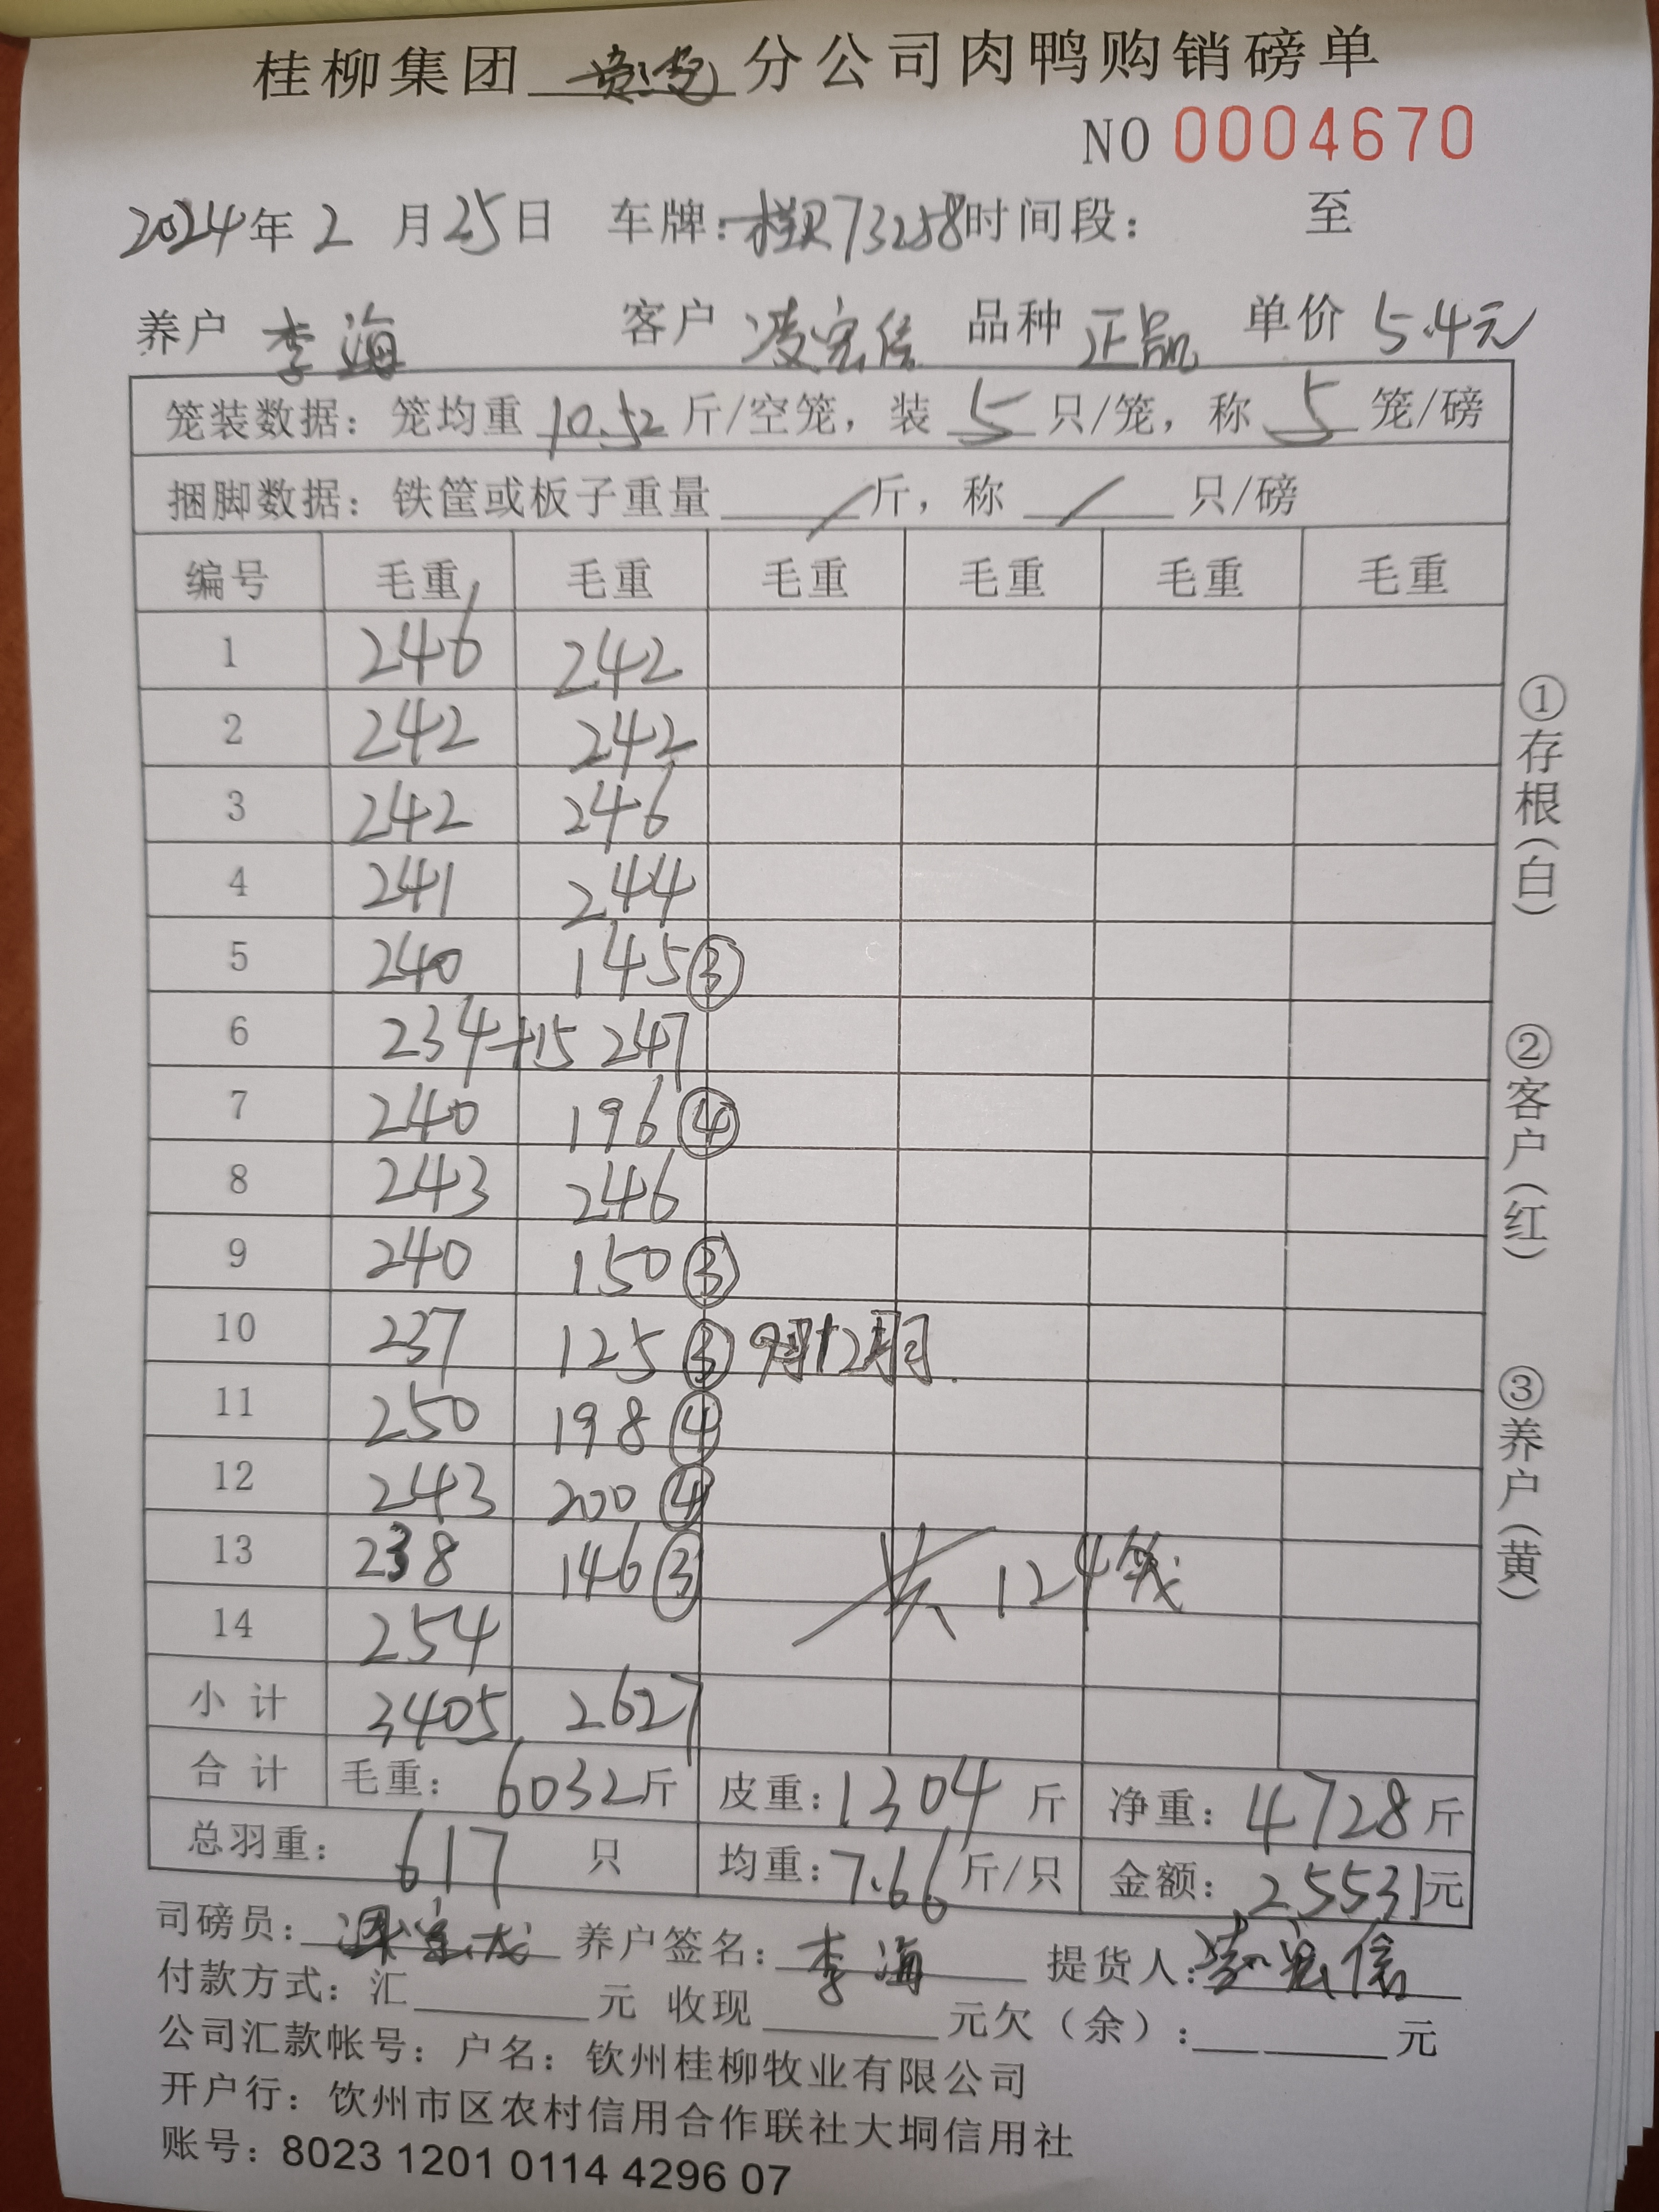 桂柳集团 分公司肉鸭购销磅单
NO 0004670
2024年2月25日 车牌:桂R73258时间段: 至
养户 李海 客户 凌宏信 品种 正品 单价 5.4元
笼装数据:笼均重 10.52 斤/空笼,装 5 只/笼,称 5 笼/磅
捆脚数据:铁筐或板子重量 / 斤,称 / 只/磅
编号 毛重 毛重 毛重 毛重 毛重 毛重
1 246 242
2 242 242
3 242 246
4 241 244
5 240 145③
6 234+15 247
7 240 196④
8 243 246
9 240 150③
10 237 125③
11 250 198④
12 243 200④
13 238 146③ 共124笼
14 254
小计 3405 2627
合计 毛重:6032斤 皮重:1304斤 净重:4728斤
总羽重:617只 均重:7.66斤/只 金额:25531元
①存根(白) ②客户(红) ③养户(黄)
司磅员: 养户签名:李海 提货人:凌宏信
付款方式:汇 元 收现 元欠(余): 元
公司汇款帐号:户名:钦州桂柳牧业有限公司
开户行:饮州市区农村信用合作联社大垌信用社
账号:8023 1201 0114 4296 07